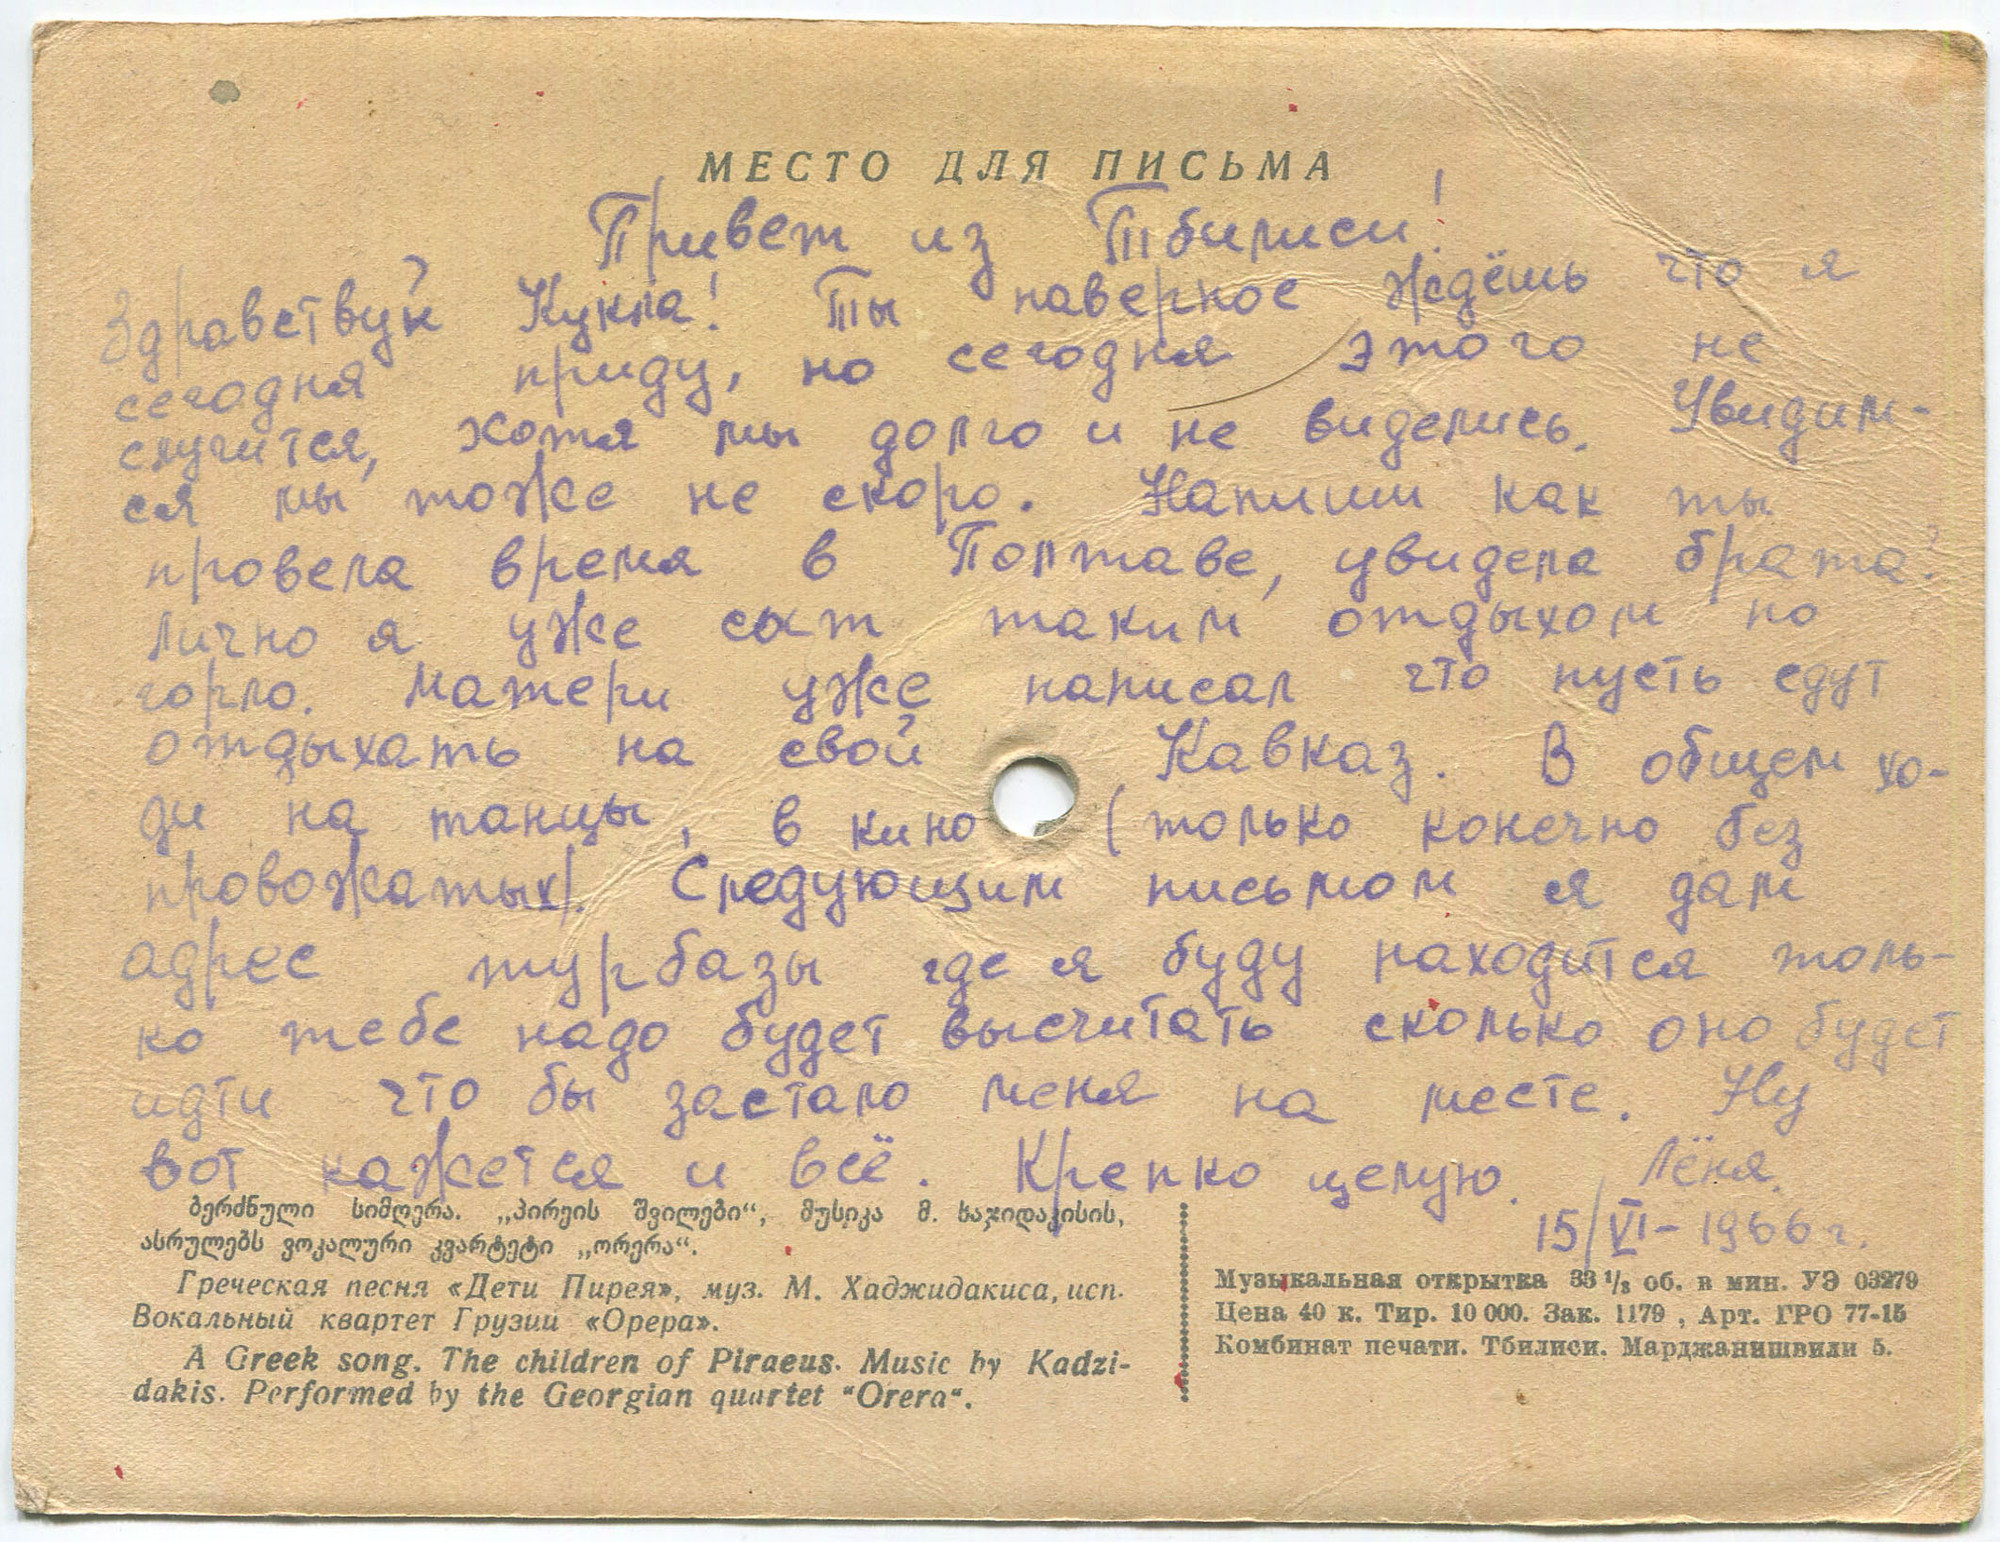 МЕСТО ДЛЯ ПИСЬМА
Привет из Тбилиси!
Здравствуй Кукла! Ты наверное ждёшь что я
сегодня приду, но сегодня этого не
случится, хотя мы долго и не виделись. Увидим-
ся мы тоже не скоро. Напиши как ты
провела время в Полтаве, увидела брата?
Лично я уже сыт таким отдыхом по
горло. Матери уже написал что пусть едут
отдыхать на свой Кавказ. В общем хо-
ди на танцы, в кино (только конечно без
провожатых). Следующим письмом я дам
адрес турбазы где я буду находится толь-
ко тебе надо будет высчитать сколько оно будет
идти что бы застало меня на месте. Ну
вот кажется и всё. Крепко целую. Лёня.
15/VI-1966 г.
ბერძნული სიმღერა. „პირეის შვილები“, მუსიკა მ. ხაჯიდაკისის,
ასრულებს ვოკალური კვარტეტი „ორერა“.
Греческая песня «Дети Пирея», муз. М. Хаджидакиса, исп.
Вокальный квартет Грузии «Орера».
A Greek song. The children of Piraeus. Music by Kadzi-
dakis. Performed by the Georgian quartet "Orera".
Музыкальная открытка 33 1/3 об. в мин. УЭ 03279
Цена 40 к. Тир. 10 000. Зак. 1179, Арт. ГРО 77-15
Комбинат печати. Тбилиси. Марджанишвили 5.